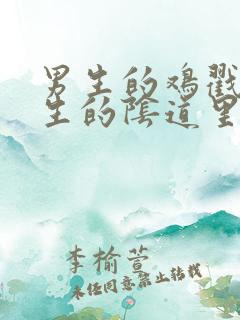 男生的鸡戳
生的陰道里
李榆萱
未经同意禁止转载